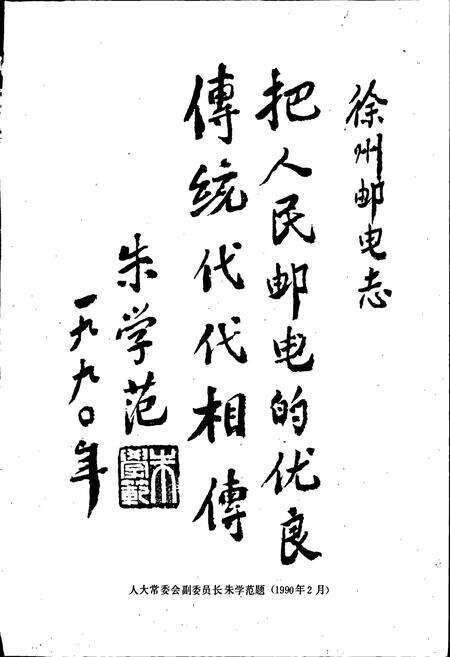 徐州邮电志
把人民邮电的优良
傳統代代相傳
朱学范
一九九〇年
朱學範
人大常委会副委员长朱学范题（1990年2月）